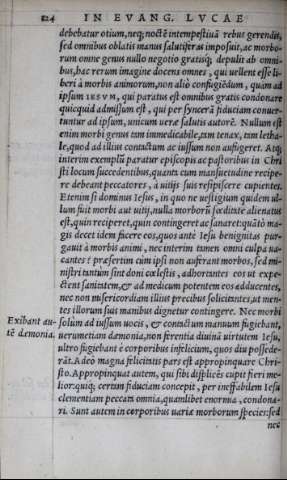 824 IN EVANG. LVCAE
debebatur otium, neq; noctẽ intempestiuã rebus gerendis,
sed omnibus oblatis manus salutiferas imposuit, ac morbo-
rum omne genus nullo negotio gratisq; depulit ab omni-
bus, hac rerum imagine docens omnes, qui uellent esse li-
beri à morbis animorum, non aliò confugiẽdum, quam ad
ipsum IESVM, qui paratus est omnibus gratis condonare
quicquid admissum est, qui per sincerã fiduciam conuer-
tuntur ad ipsum, unicum ueræ salutis autorẽ. Nullum est
enim morbi genus tam immedicabile, tam tenax, tam letha-
le, quod ad illius contactum ac iussum non aufugeret. Atq;
interim exemplũ paratur episcopis ac pastoribus in Chri
sti locum succedentibus, quanta cum mansuetudine recipe-
re debeant peccatores, à uitijs suis resipiscere cupientes.
Etenim si dominus Iesus, in quo ne uestigium quidem ul-
lum fuit morbi aut uitij, nulla morborũ fœditate alienatus
est, quin reciperet, quin contingeret ac sanaret: quãto ma-
gis decet idem facere eos, quos ante Iesu benignitas pur-
gauit à morbis animi, nec interim tamen omni culpa ua-
cantes? præsertim cùm ipsi non auferant morbos, sed mi-
nistri tantùm sint doni cœlestis, adhortantes eos ut expe-
ctent sanitatem, & ad medicum potentem eos adducentes,
nec non misericordiam illius precibus solicitantes, ut men-
tes illorum suis manibus dignetur contingere. Nec morbi
Exibant au-
tẽ dæmonia.
solùm ad iussum uocis, & contactum manuum fugiebant,
uerumetiam dæmonia, non ferentia diuinã uirtutem Iesu,
ultro fugiebant è corporibus infelicium, quos diu possede-
rãt. Adeò magna felicitatis pars est appropinquare Chri-
sto. Appropinquat autem, qui sibi displicẽs cupit fieri me-
lior: quiq; certam fiduciam concepit, per ineffabilem Iesu
clementiam peccata omnia, quamlibet enormia, condona-
ri. Sunt autem in corporibus uariæ morborum species: sed
nec